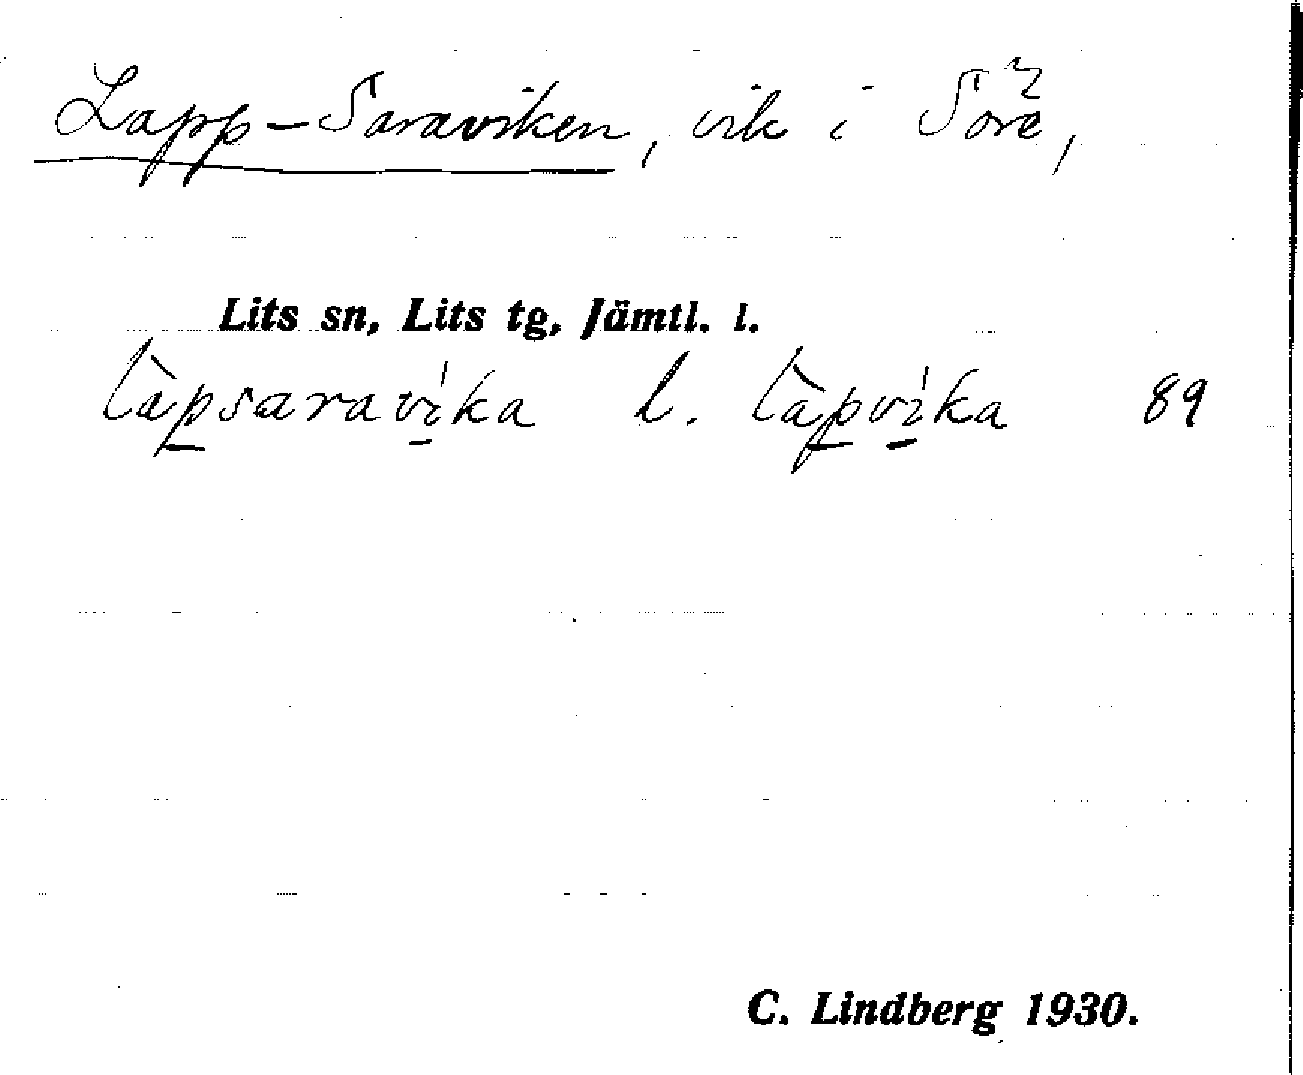 Lapp-Saraviken, vik i Sör²,
Lits sn, Lits tg, Jämtl. l.
làpsaravíka l. làpvíka 89
C. Lindberg 1930.